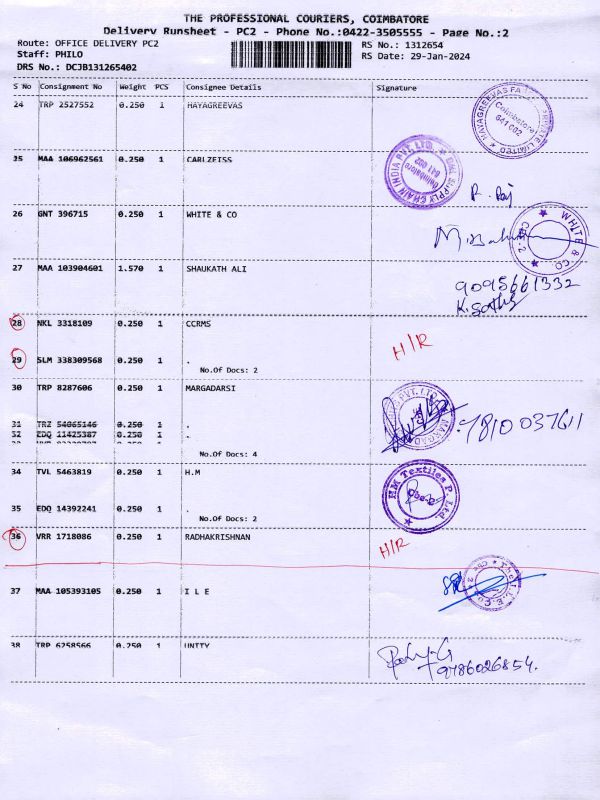 THE PROFESSIONAL COURIERS, COIMBATORE
Delivery Runsheet - PC2 - Phone No.:0422-3505555 - Page No.:2
Route: OFFICE DELIVERY PC2
RS No.: 1312654
Staff: PHILO
RS Date: 29-Jan-2024
DRS No.: DCJB131265402
S No Consignment No Weight PCS Consignee Details Signature
24 TRP 2527552 0.250 1 HAYAGREEVAS
Coimbatore 641 002
25 MAA 106962561 0.250 1 CARLZEISS
Coimbatore 641 002
26 GNT 396715 0.250 1 WHITE & CO
WHITE & CO
27 MAA 103904601 1.570 1 SHAUKATH ALI
9095661332
28 NKL 3318109 0.250 1 CCRMS
H/R
29 SLM 338309568 0.250 1 .
No.Of Docs: 2
30 TRP 8287606 0.250 1 MARGADARSI
9810037611
31 TRZ 54065146 0.250 1 .
32 EDQ 11425387 0.250 1 .
No.Of Docs: 4
34 TVL 5463819 0.250 1 H.M
HM Textiles P. Ltd.
35 EDQ 14392241 0.250 1 .
No.Of Docs: 2
36 VRR 1718086 0.250 1 RADHAKRISHNAN
H/R
37 MAA 105393105 0.250 1 I L E
38 TRP 6258566 0.250 1 UNITY
9786026854.